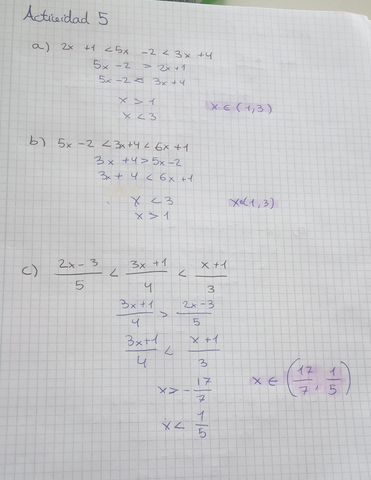 Actividad 5
a) 2x +1 < 5x -2 < 3x +4
5x -2 > 2x+1
5x -2 < 3x+4
x > 1
x < 3
x ∈ (1,3)
b) 5x -2 < 3x+4 < 6x +1
3x +4 > 5x-2
3x + 4 < 6x +1
x < 3
x > 1
x∈(1,3)
c) (2x-3)/5 < (3x+1)/4 < (x+1)/3
(3x+1)/4 > (2x-3)/5
(3x+1)/4 < (x+1)/3
x > -17/7
x < 1/5
x ∈ (17/7, 1/5)